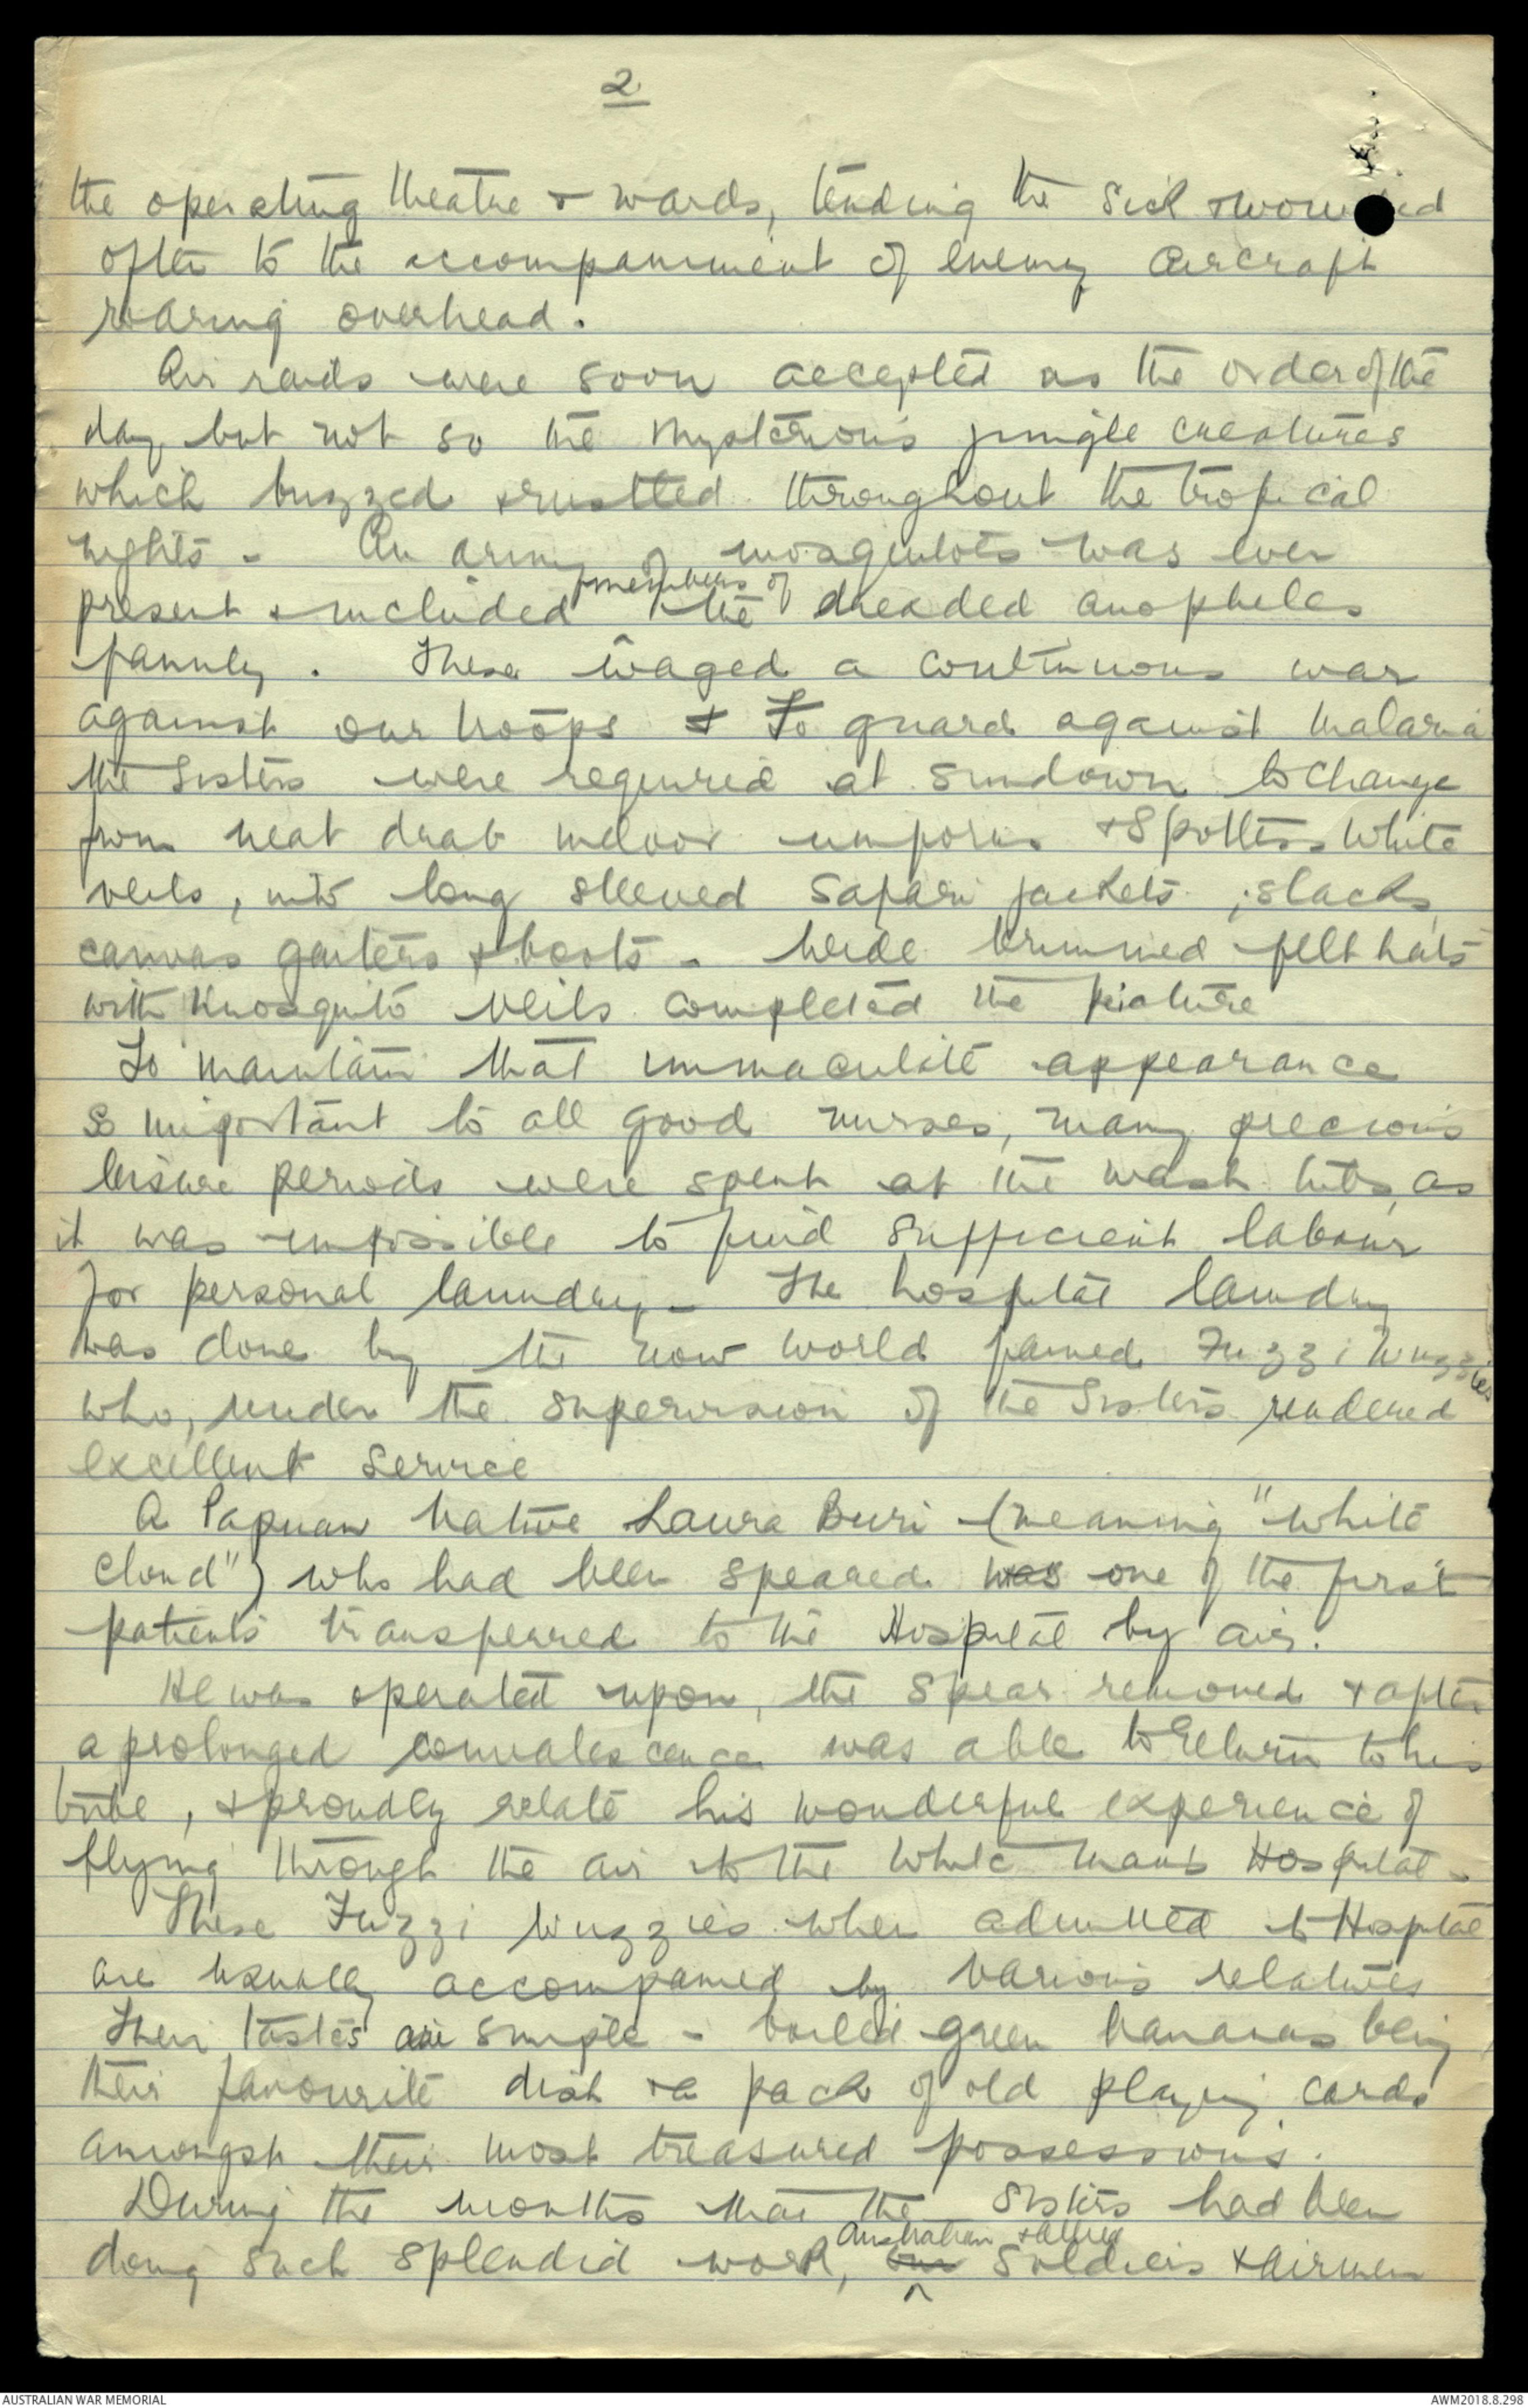 2
the operating theatre & wards, tending the sick & wounded
often to the accompaniment of enemy aircraft
roaring overhead.
Air raids were soon accepted as the order of the
day but not so the mysterious jungle creatures
which buzzed & rustled throughout the tropical
nights - An army of mosquitoes was ever
members of
present & included the dreaded anopheles
family. These waged a continuous war
against our troops & To guard against malaria
the Sisters were required at sundown to change
from neat drab indoor uniforms & spotless white
veils, into long sleeved safari jackets, slacks,
canvas gaiters & boots - Wide brimmed felt hats
with mosquito veils completed the picture
To maintain that immaculate appearance
so important to all good nurses, many precious
leisure periods were spent at the wash tubs, as
it was impossible to find sufficient labour
for personal laundry - The hospital laundry
was done by the now world famed Fuzzi Wuzzies
who, under the supervision of the Sisters rendered
excellent service
A Papuan Native Laura Buri (meaning "white
cloud") who had been speared was one of the first
patients transferred to the Hospital by air.
He was operated upon, the spear removed & after
a prolonged convalescence was able to return to his
tribe, & proudly relate his wonderful experience of
flying through the air to the white mans Hospital -
These Fuzzi Wuzzies when admitted to Hospital
are usually accompanied by various relatives
Their tastes are simple - boiled green bananas being
their favourite dish & a pack of old playing cards
amongst their most treasured possessions.
During the months that the Sisters had been
Australian & Allied
doing such splendid work, our soldiers & airmen
AUSTRALIAN WAR MEMORIAL
AWM2018.8.298